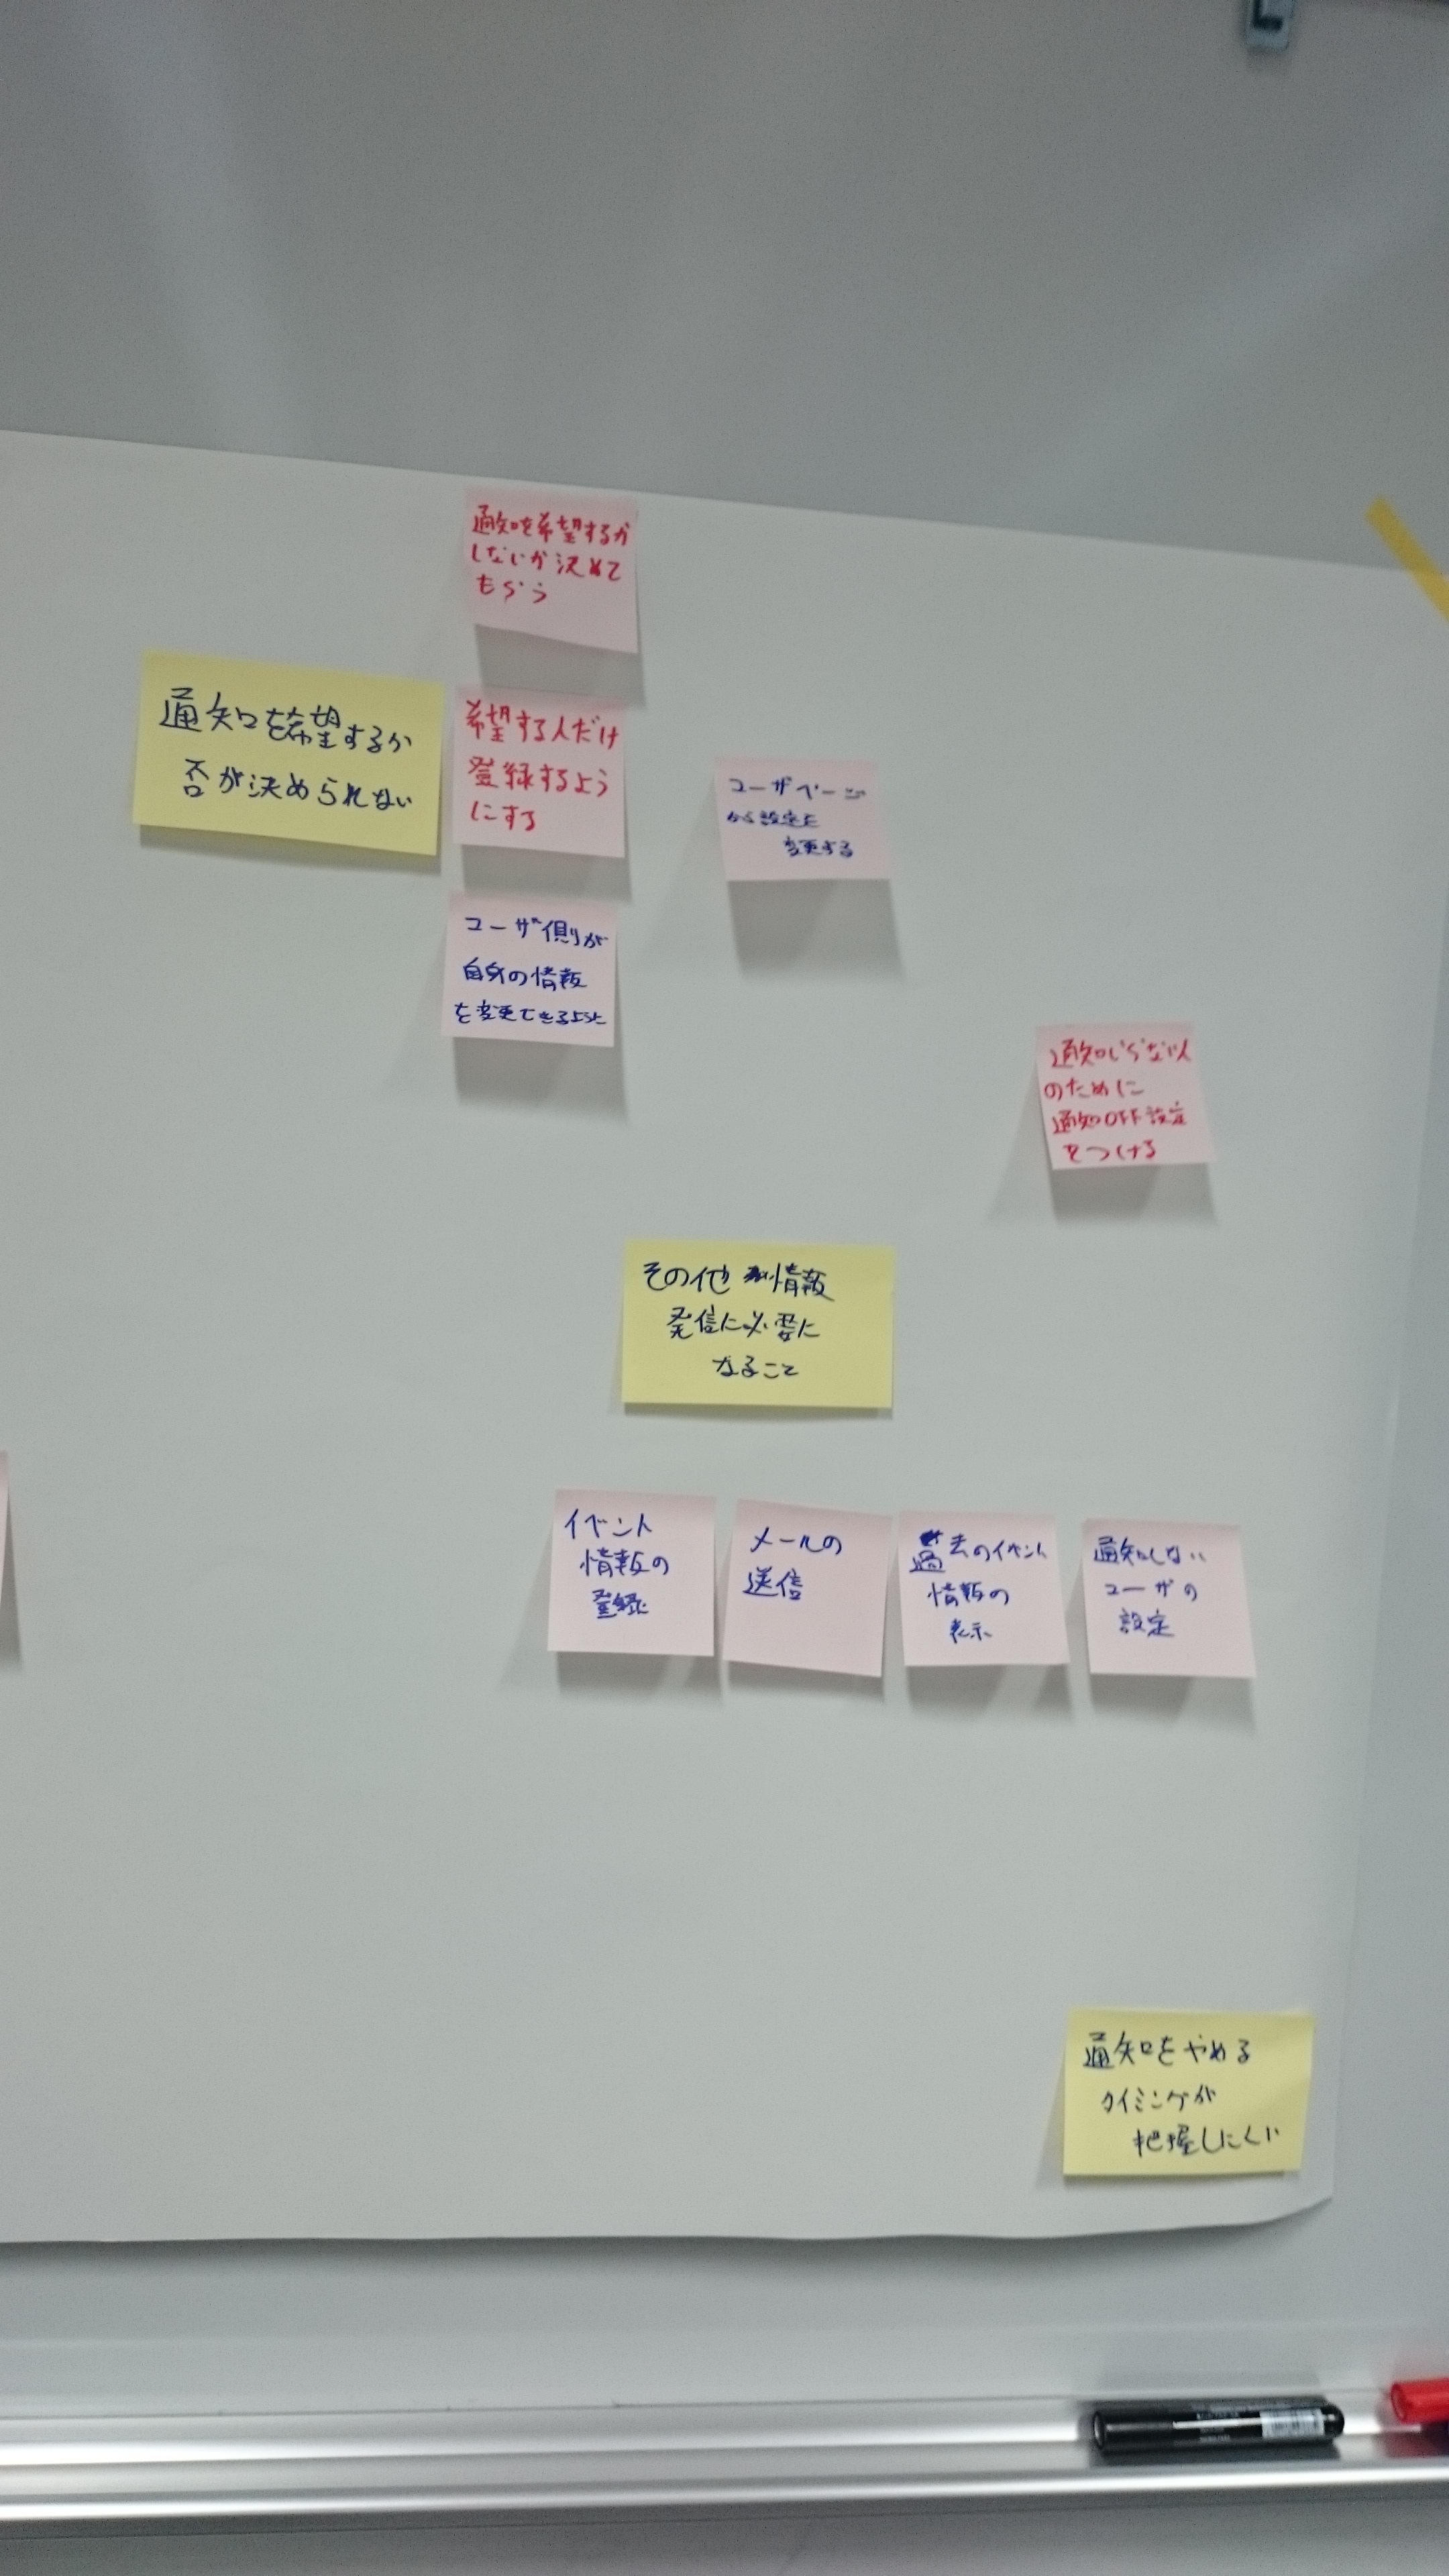 通知を希望するか
しないか決めて
もらう
通知を希望するか
否が決められない
希望する人だけ
登録するよう
にする
ユーザページ
から設定を
変更する
ユーザ側が
自身の情報
を変更できるように
通知いらない人
のために
通知OFF設定
をつける
その他 情報
発信に必要に
なること
イベント
情報の
登録
メールの
送信
過去のイベント
情報の
表示
通知しない
ユーザの
設定
通知をやめる
タイミングが
把握しにくい